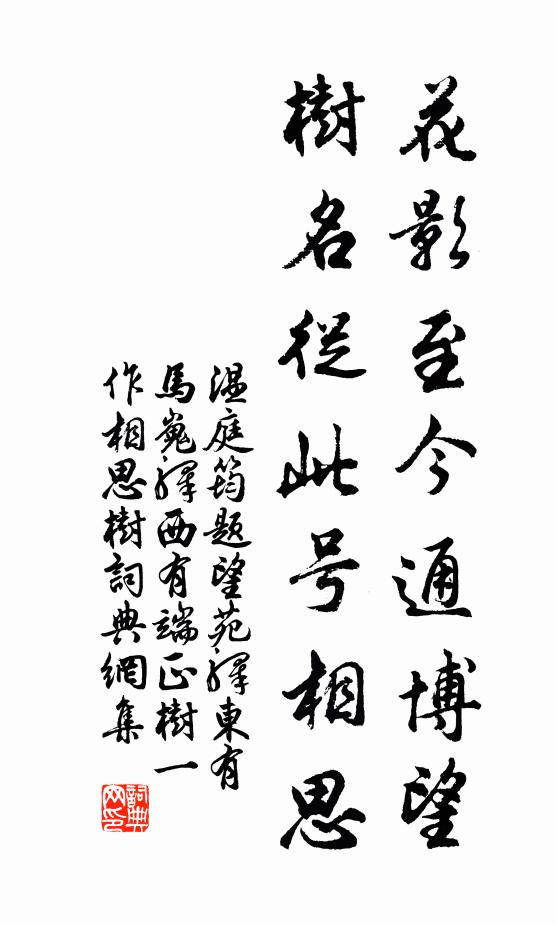 花影至今通博望
樹名從此号相思
温庭筠題望苑驛東有
馬嵬驛西有端正樹一
作相思樹詞典網集
詞典网印